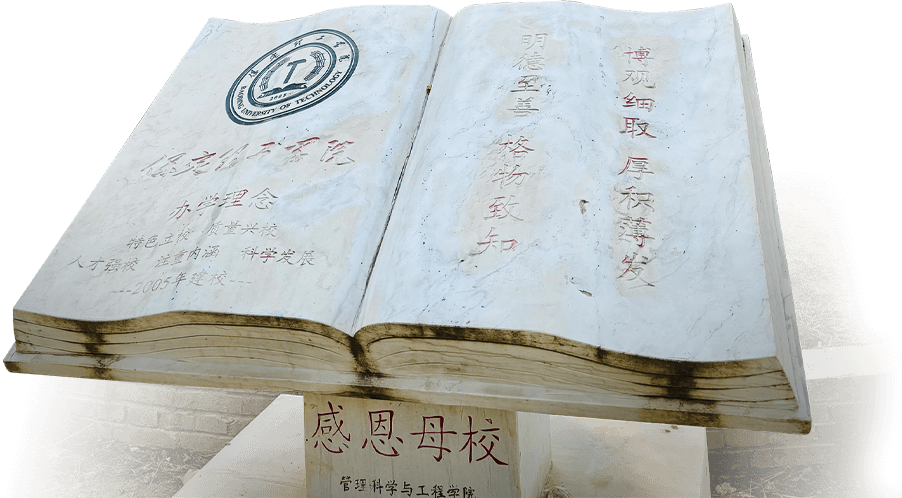 保定理工学院
BAODING UNIVERSITY OF TECHNOLOGY
保定理工学院
办学理念
特色立校 质量兴校
人才强校 注重内涵 科学发展
---2005年建校---
博观细取 厚积薄发
明德至善 格物致知
感恩母校
管理科学与工程学院